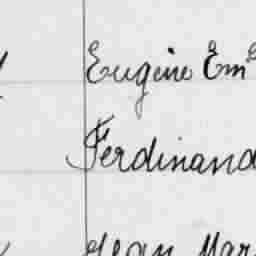 Eugène Em
Ferdinand
Jean Mar